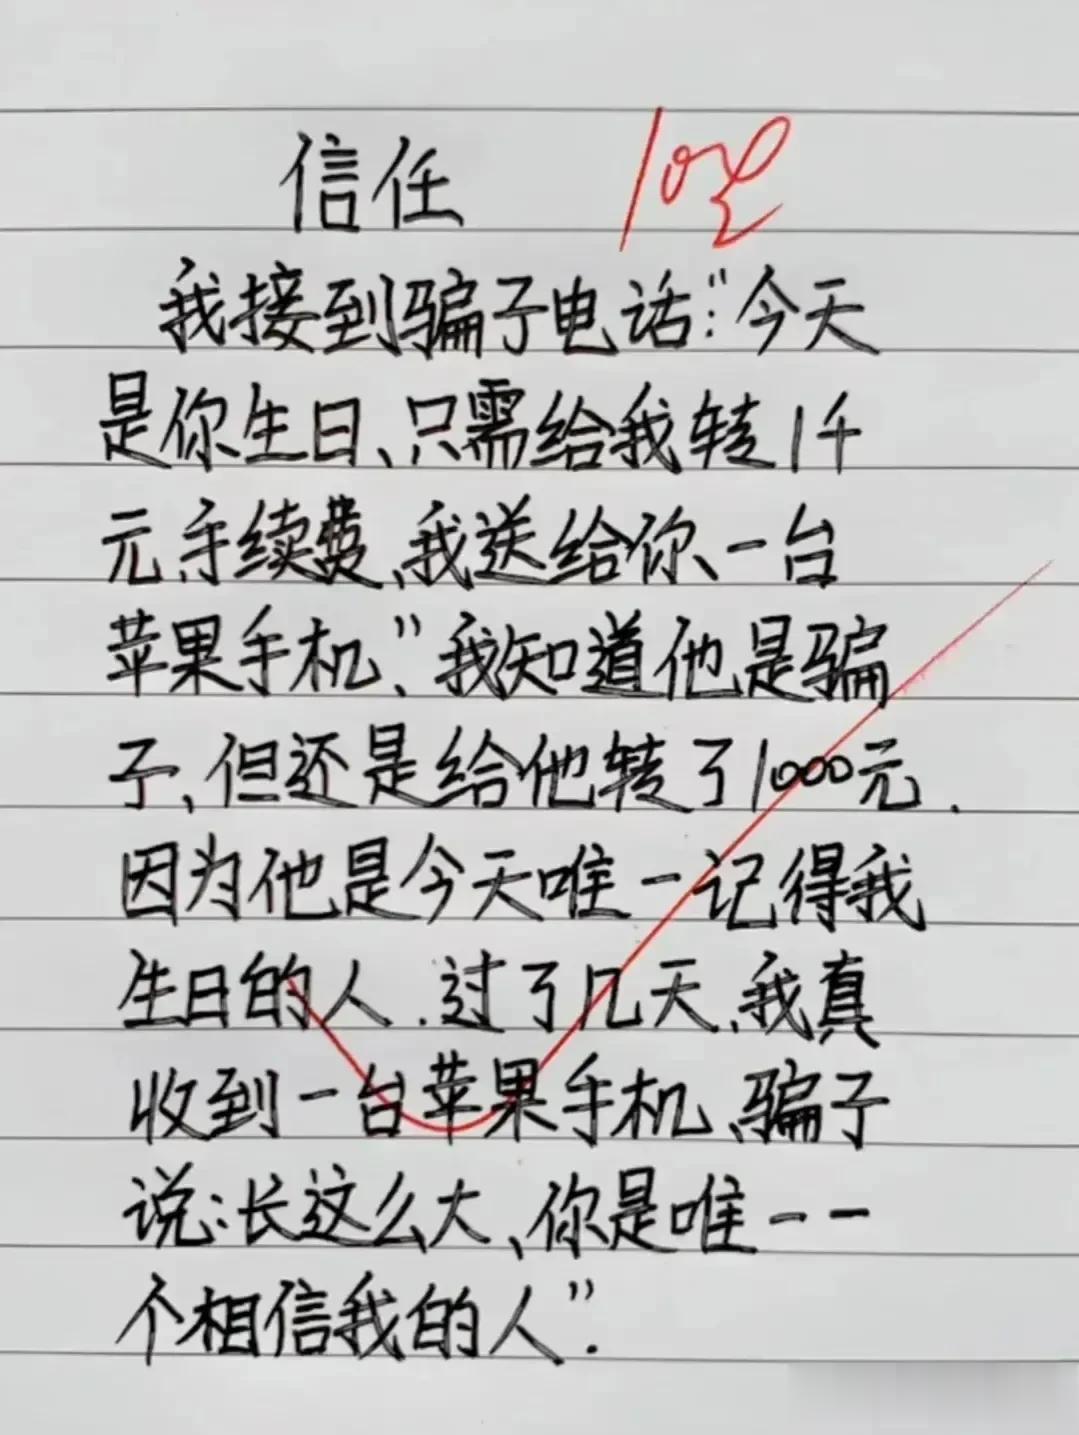 信任
我接到骗子电话:“今天
是你生日、只需给我转1千
元手续费、我送给你一台
苹果手机、”我知道他是骗
子、但还是给他转了1000元.
因为他是今天唯一记得我
生日的人.过了几天、我真
收到一台苹果手机、骗子
说:长这么大、你是唯一一
个相信我的人”.